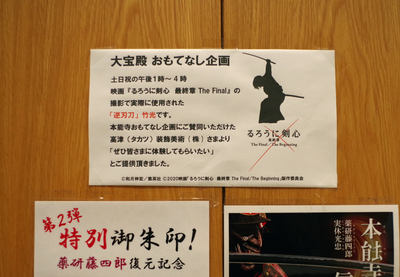 大宝殿 おもてなし企画
土日祝の午後1時~4時
映画『るろうに剣心 最終章 The Final』の
撮影で実際に使用された
「逆刃刀」竹光です。
本能寺おもてなし企画にご賛同いただけた
高津(タカツ)装飾美術(株)さまより
「ぜひ皆さまに体験してもらいたい」
とご提供頂きました。
るろうに剣心
最終章
The Final / The Beginning
©和月伸宏/集英社 ©2020映画「るろうに剣心 最終章 The Final/The Beginning」製作委員会
第2弾
特別御朱印!
薬研藤四郎復元記念
本能寺
薬研藤四郎
実休光忠